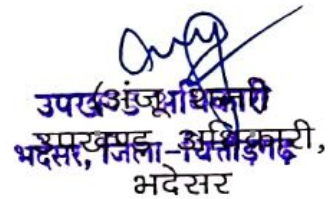 उपखण्ड अधिकारी
(अंजू
भदेसर, जिला-चित्तौड़गढ़
उपखण्ड अधिकारी,
भदेसर